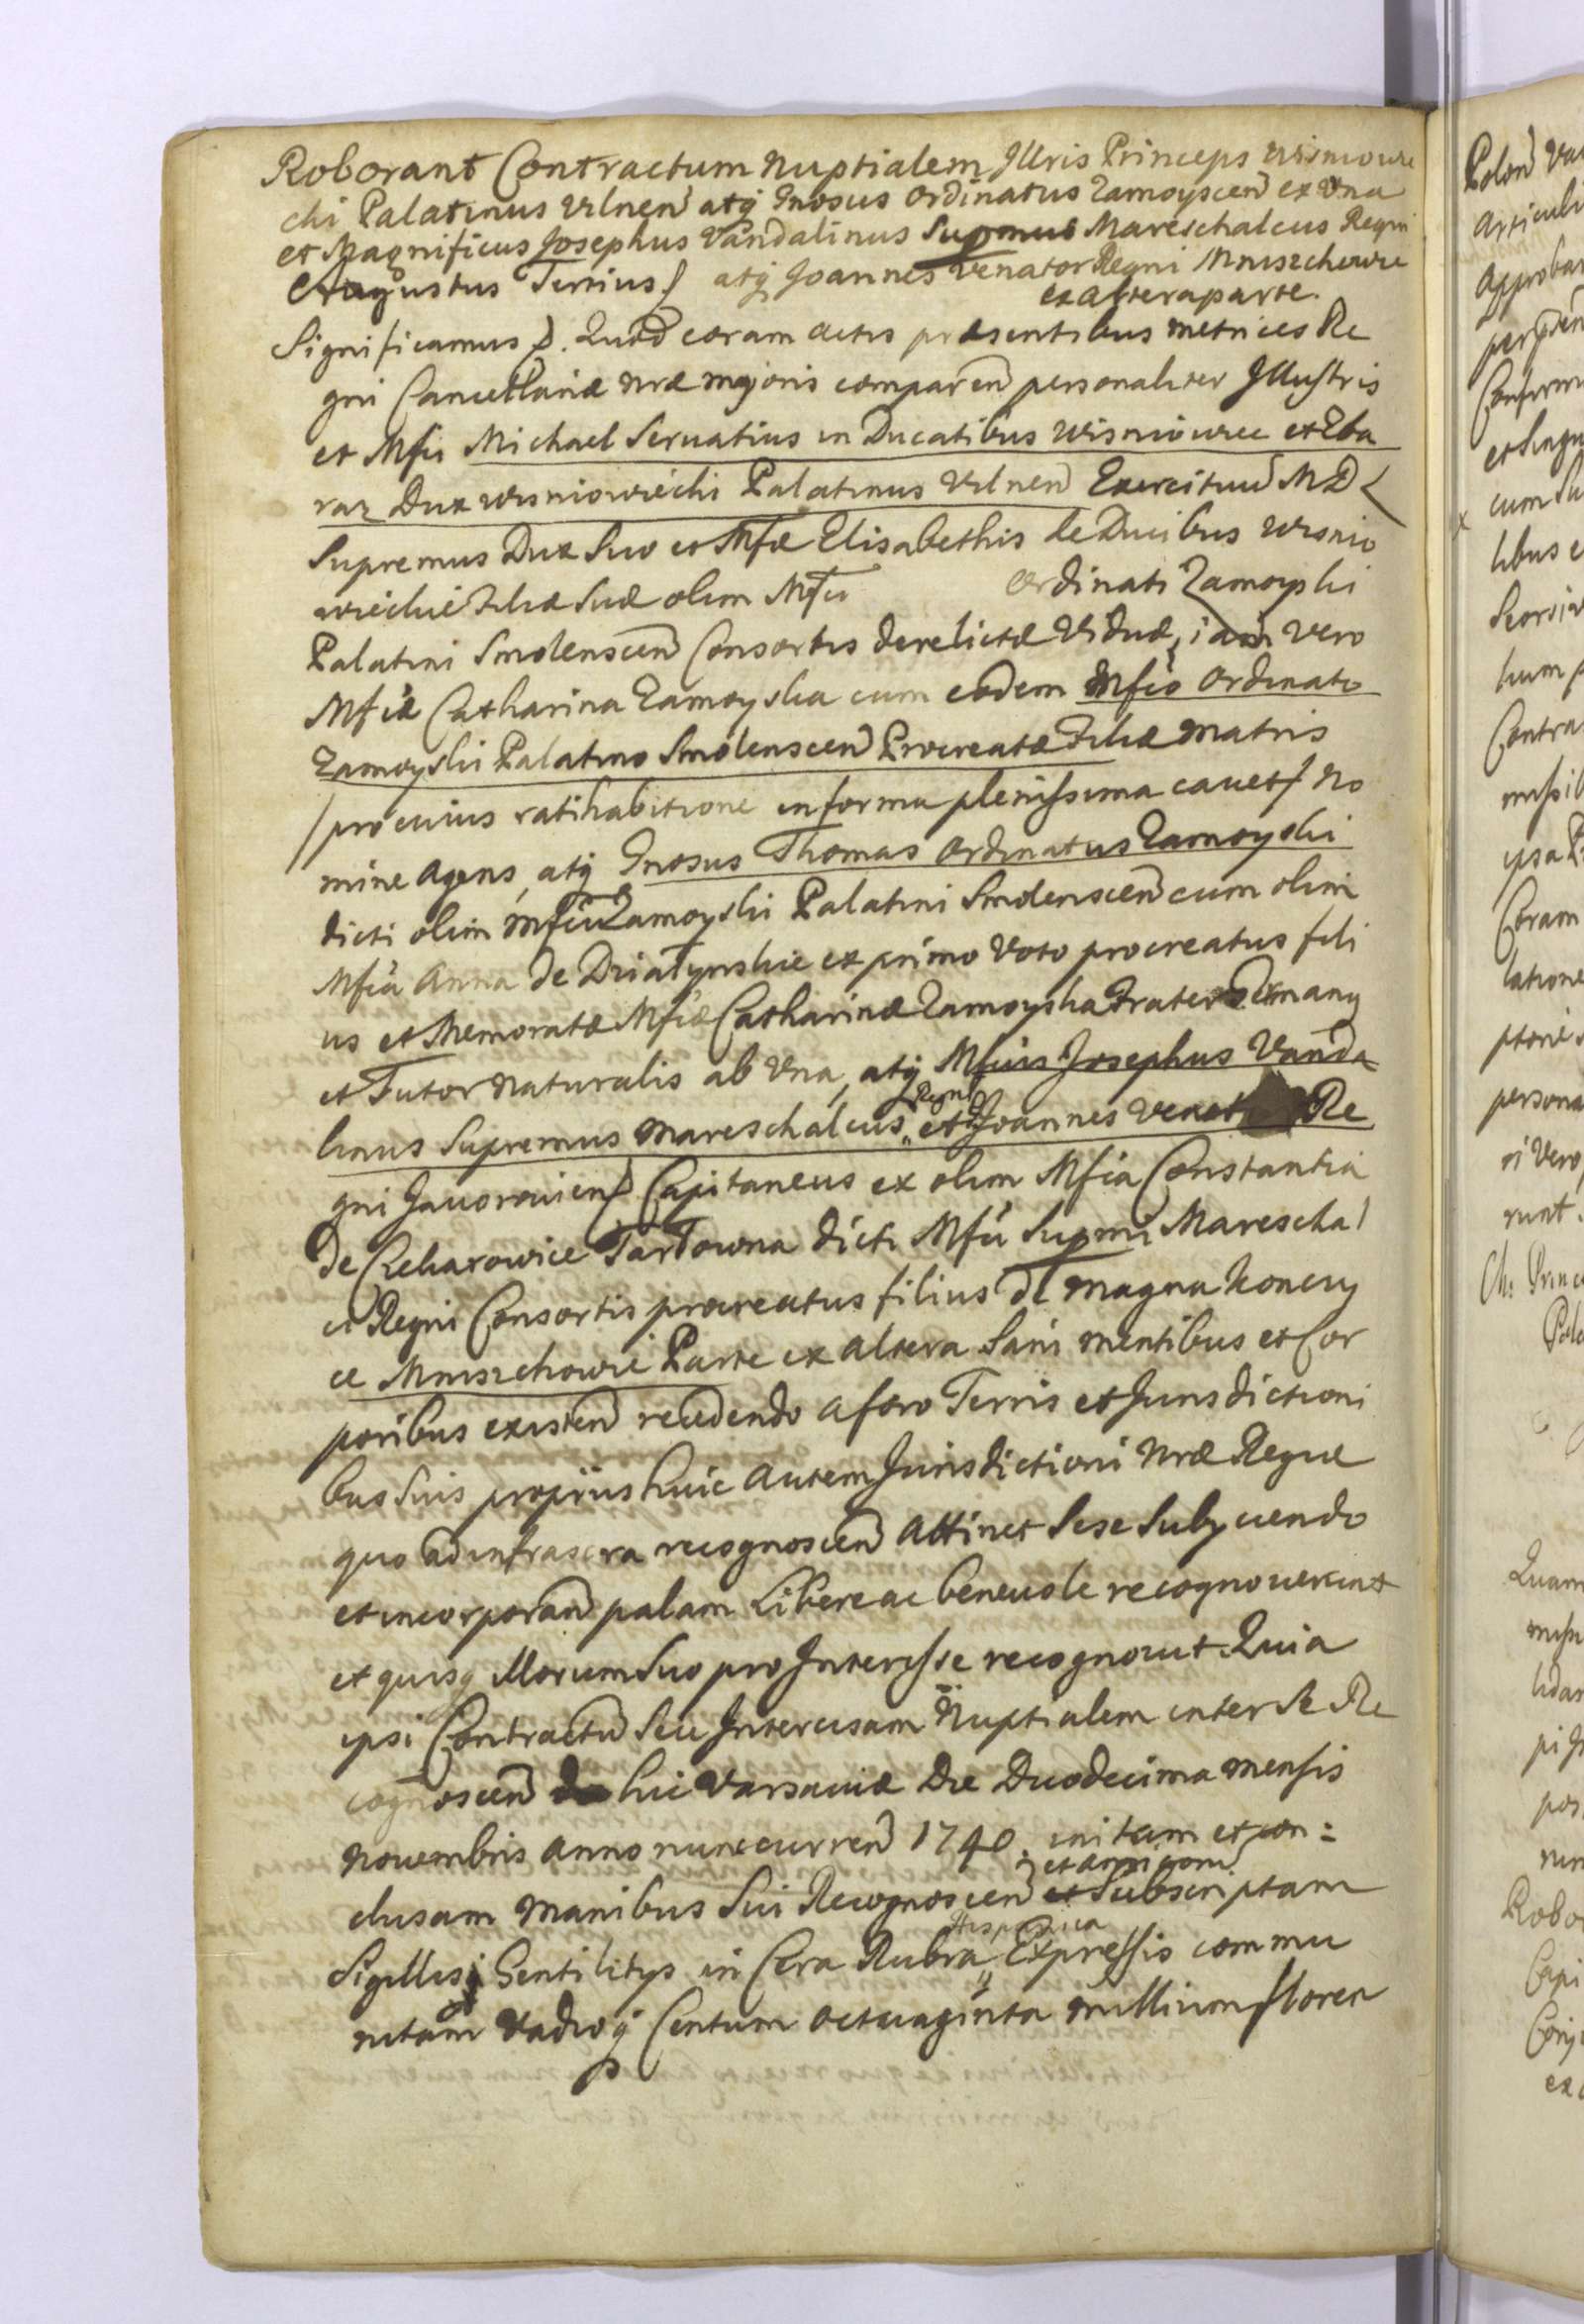 Roborant Contractum Nuptialem Illris Princeps Wisniowie
cki Palatinus Vilnen atq Gnosus Ordinatus Zamoyscen ex Vna
et Magnificus Josephus Vandalinus Supmus Mareschalcus Regni
Augustus Tertius atq Joannes Venator Regni Mniszchowie
ex altera parte.
Significamus. Quod coram actis præsentibus Metrices Re
gni Cancellariæ Nræ Majoris comparen personaliter Illustris
et Mfii Michael Seruatius in Ducatibus Wisniowiec et Zba
raz Dux Wisniowiecki Palatinus Vilnen Exercituu M D L
Supremus Dux Suo et Mfæ Elisabethis de Ducibus Wisnio
wieckie Filiæ Suæ olim Mfii Ordinati Zamoyski
Palatini Smolenscen Consortis derelictæ Viduæ, iam vero
Mfiæ Catharina Zamoyska cum eodem Mfio Ordinato
Zamoyski Palatino Smolenscen Procreatæ Filiæ Matris
/pro cuius ratihabitione in forma plenissima cauet/ No
mine Agens, atq Gnosus Thomas Ordinatus Zamoyski
dicti olim Mfii Zamoyski Palatini Smolenscen cum olim
Mfia Anna de Dzialynskie ex primo Voto procreatus fili
us et Memoratæ Mfiæ Catharinæ Zamoyska Frater Germany
et Tutor Naturalis ab Vna, atq Mfius Josephus Vanda
linus Supremus Mareschalcus Regni et Joannes Venator Re
gni Jauorouien Capitaneus ex olim Mfia Constantia
de Czekarowice Tarłowna dicti Mfii Supmi Mareschal
ci Regni Consortis procreatus filius de Magna Konczy
ce Mniszchowie Parte ex altera Sani mentibus et Cor
poribus existen recedendo a foro Terris et Jurisdictioni
bus Suis propriis huic autem Jurisdictioni Nræ Regiæ
quo ad infrascra recognoscen attinet Sese Subyciendo
et incorporan palam Libere ac beneuole recognouerunt
et quisq Illorum Suo pro Interesse recognouit Quia
ipsi Contractu Seu Intercisam Nuptialem inter Se Re
cognoscen hic Varsauiæ Die Duodecima Mensis
Nouembris Anno nunc curren 1740. initam et con=
clusam Manibus Sui Recognoscen et amicorum Subscriptam
Sigillisq Gentilitys in Cera Rubra Hispanica Expressis commu
nitam Vadioq Centum Octuaginta Millium floren